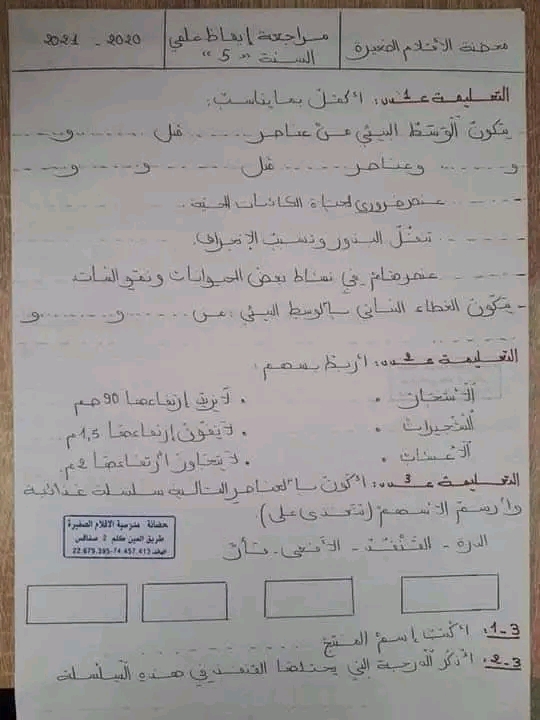 محضنة الأقلام الصغيرة
مراجعة إيقاظ علمي
السنة "5"
2020 - 2021
التعليمة عدد 1: أكمل بما يناسب:
- يتكون الوسط البيئي من عناصر ...... مثل ...... و......
و...... وعناصر ...... مثل ...... و...... و......
- ...... عنصر ضروري لحياة الكائنات الحية.
- ...... تنقل البذور وتسبب الإنجراف.
- ...... عنصر هام في نشاط بعض الحيوانات ونمو النبات
- يتكون الغطاء النباتي بالوسط البيئي من ...... و...... و
......
التعليمة عدد 2: أربط بسهم:
الأشجار • • لا يزيد إرتفاعها 90 صم
الشجيرات • • لا يفوق إرتفاعها 1,5م.
الأعشاب • • لا يتجاوز ارتفاعها 2م.
التعليمة عدد 3: أكون بالعناصر التالية سلسلة غذائية
وأرسم الأسهم (تتغذى على).
الذرة - القنفذ - الأفعى - فأر
حضانة - مدرسية الاقلام الصغيرة
طريق العين كلم 2 صفاقس
الهاتف 22.679.395-74.457.413
3-1: أكتب إسم المنتج ......
3-2: أذكر الدرجة التي يحتلها القنفذ في هذه السلسلة